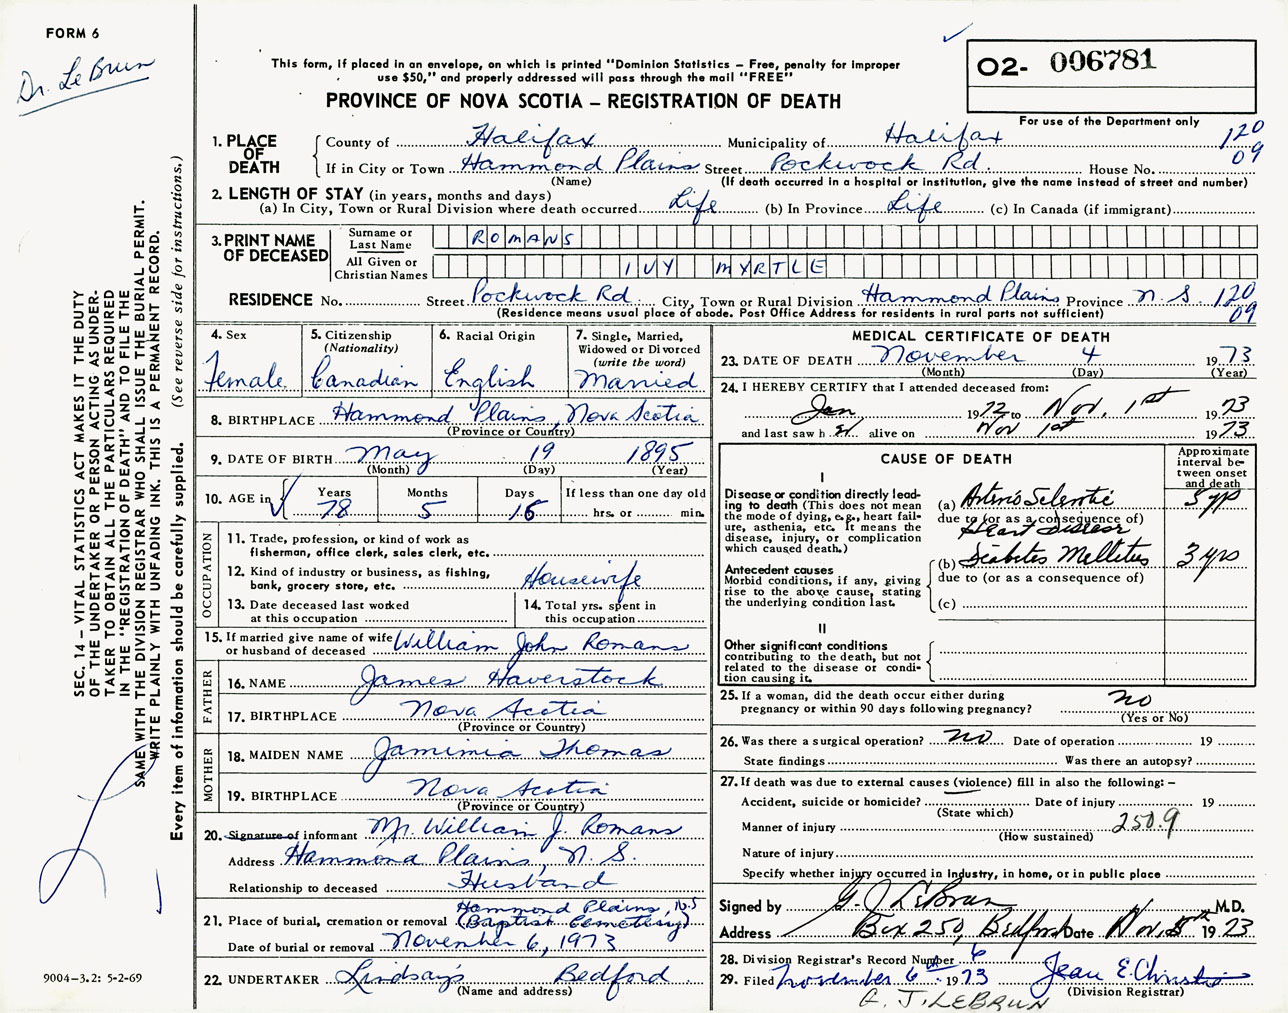 FORM 6
Dr. LeBrun
This form, if placed in an envelope, on which is printed "Dominion Statistics – Free, penalty for improper
use $50," and properly addressed will pass through the mail "FREE"
PROVINCE OF NOVA SCOTIA – REGISTRATION OF DEATH
O2- 006781
For use of the Department only
1. PLACE OF DEATH
County of Halifax Municipality of Halifax 120
If in City or Town Hammond Plains Street Pockwock Rd. House No. 09
(Name) (If death occurred in a hospital or institution, give the name instead of street and number)
2. LENGTH OF STAY (in years, months and days)
(a) In City, Town or Rural Division where death occurred Life (b) In Province Life (c) In Canada (if immigrant)
3. PRINT NAME OF DECEASED
Surname or Last Name ROMANS
All Given or Christian Names IVY MYRTLE
RESIDENCE No. Street Pockwock Rd. City, Town or Rural Division Hammond Plains Province N.S 120
(Residence means usual place of abode. Post Office Address for residents in rural parts not sufficient) 09
4. Sex
Female
5. Citizenship
(Nationality)
Canadian
6. Racial Origin
English
7. Single, Married,
Widowed or Divorced
(write the word)
Married
8. BIRTHPLACE Hammond Plains, Nova Scotia
(Province or Country)
9. DATE OF BIRTH May 19 1895
(Month) (Day) (Year)
10. AGE in Years Months Days If less than one day old
78 5 16 hrs. or min.
OCCUPATION
11. Trade, profession, or kind of work as
fisherman, office clerk, sales clerk, etc.
12. Kind of industry or business, as fishing,
bank, grocery store, etc. Housewife
13. Date deceased last worked
at this occupation
14. Total yrs. spent in
this occupation
15. If married give name of wife
or husband of deceased William John Romans
FATHER
16. NAME James Haverstock
17. BIRTHPLACE Nova Scotia
(Province or Country)
MOTHER
18. MAIDEN NAME Jamimia Thomas
19. BIRTHPLACE Nova Scotia
(Province or Country)
20. Signature of informant Mr. William J. Romans
Address Hammond Plains, N.S.
Relationship to deceased Husband
Hammond Plains, N.S
21. Place of burial, cremation or removal (Baptist Cemetery)
Date of burial or removal November 6, 1973
22. UNDERTAKER Lindsay's Bedford
(Name and address)
MEDICAL CERTIFICATE OF DEATH
23. DATE OF DEATH November 4 1973
(Month) (Day) (Year)
24. I HEREBY CERTIFY that I attended deceased from:
Jan 1972 to Nov. 1st 1973
and last saw h er alive on Nov 1st 1973
CAUSE OF DEATH
Approximate
interval be-
tween onset
and death
I
Disease or condition directly lead-
ing to death (This does not mean
the mode of dying, e.g., heart fail-
ure, asthenia, etc. It means the
disease, injury, or complication
which caused death.)
(a) Arterio Sclerotic 5 yrs
due to (or as a consequence of)
Heart Disease
(b) Diabetes Mellitus 3 yrs
due to (or as a consequence of)
(c)
Antecedent causes
Morbid conditions, if any, giving
rise to the above cause, stating
the underlying condition last.
II
Other significant conditions
contributing to the death, but not
related to the disease or condi-
tion causing it.
25. If a woman, did the death occur either during
pregnancy or within 90 days following pregnancy? no
(Yes or No)
26. Was there a surgical operation? no Date of operation 19
State findings Was there an autopsy?
27. If death was due to external causes (violence) fill in also the following: –
Accident, suicide or homicide? Date of injury 19
(State which)
Manner of injury 250.9
(How sustained)
Nature of injury
Specify whether injury occurred in industry, in home, or in public place
Signed by G. J. LeBrun M.D.
Address Box 250, Bedford Date Nov. 5th 1973
28. Division Registrar's Record Number 6
29. Filed November 6 1973 Jean E. Christie
(Division Registrar)
G. J. LEBRUN
SEC. 14 – VITAL STATISTICS ACT MAKES IT THE DUTY
OF THE UNDERTAKER OR PERSON ACTING AS UNDER-
TAKER TO OBTAIN ALL THE PARTICULARS REQUIRED
IN THE "REGISTRATION OF DEATH" AND TO FILE THE
SAME WITH THE DIVISION REGISTRAR WHO SHALL ISSUE THE BURIAL PERMIT.
WRITE PLAINLY WITH UNFADING INK. THIS IS A PERMANENT RECORD.
Every item of information should be carefully supplied. (See reverse side for instructions.)
9004-3.2: 5-2-69